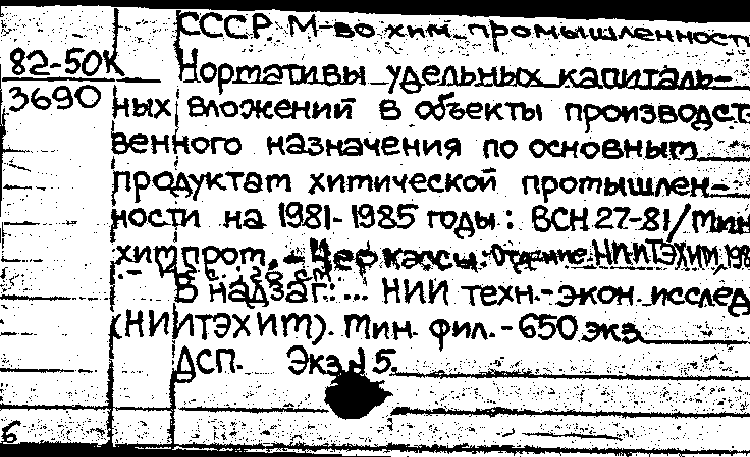 СССР. М-во хим. промышленност
82-50К
Нормативы удельных капиталь-
3690
ных вложений в объекты производст-
венного назначения по основным
продуктам химической промышлен-
ности на 1981-1985 годы: ВСН 27-81/Мин
химпром. - Черкассы: Отд-ние НИИТЭХИМ, 198
В надзаг.: ... НИИ техн.-экон. исслед
(НИИТЭХИМ). Мин. фил. - 650 экз.
ДСП. Экз. 15.
6